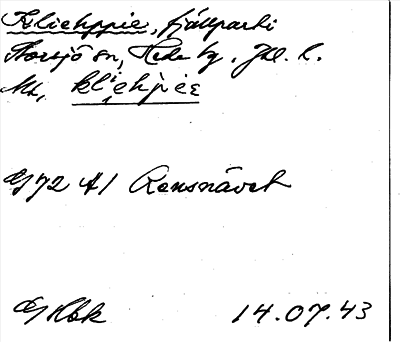 Kliehppie, fjällparti
Storsjö sn, Hede tg. Jtl. l.
Ml, kliehpie
EJ 72 A1 Rensnävet
EJ Hbk 14.07.43